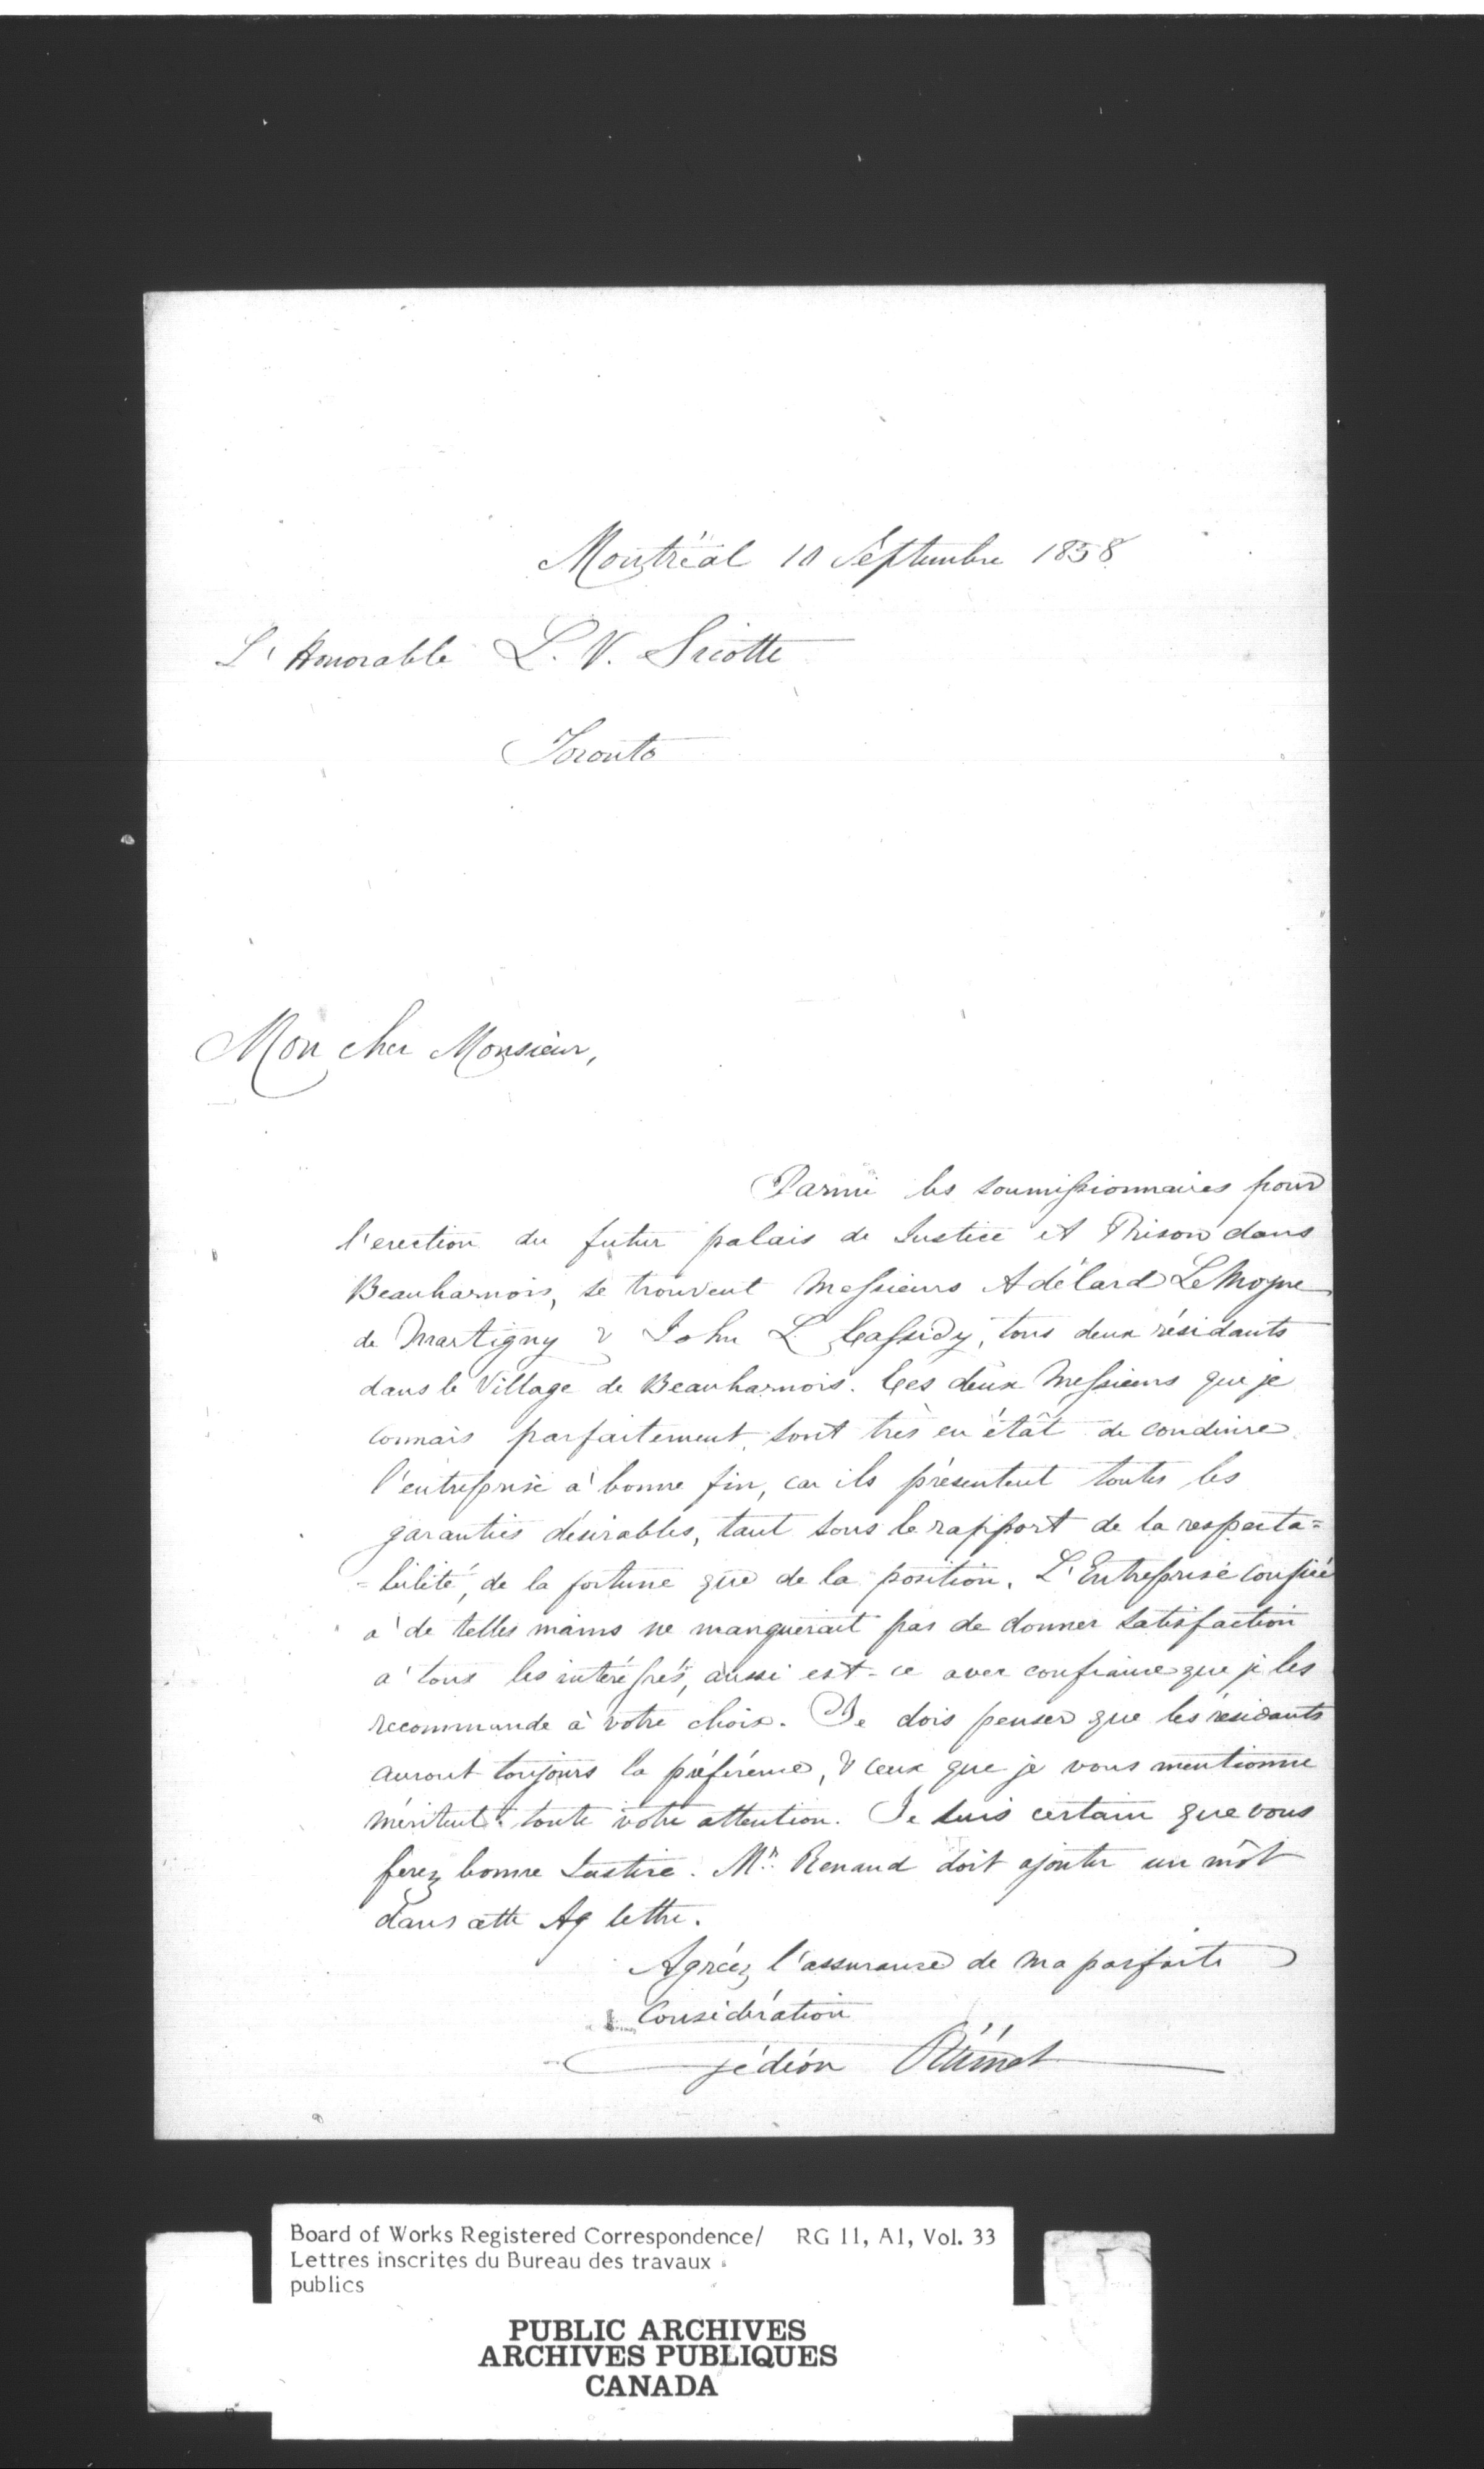 Montréal 10 Septembre 1858
L'Honorable L. V. Sicotte
Toronto
Mon cher Monsieur,
Parmi les soumissionnaires pour
l'erection du futur palais de Justice et Prison dans
Beauharnois, se trouvent Messieurs Adélard LeMoyne
de Martigny & John L. Cassidy, tous deux résidants
dans le Village de Beauharnois. Ces deux Messieurs que je
connais parfaitement, sont très en étât de conduire
l'entreprise à bonne fin, car ils présentent toutes les
garanties désirables, tant sous le rapport de la respecta=
=bilité, de la fortune que de la position. L'Entreprise confiée
à de telles mains ne manquerait pas de donner satisfaction
à tous les intéressés, aussi est-ce avec confiance que je les
recommande à votre choix. Je dois penser que les résidants
auront toujours la préférence, & ceux que je vous mentionne
méritent toute votre attention. Je suis certain que vous
ferez bonne Justice. Mr. Renaud doit ajouter un môt
dans cette lettre.
Agréez l'assurance de ma parfaite
Considération
Gédéon Ouimet
Board of Works Registered Correspondence/ RG 11, A1, Vol. 33
Lettres inscrites du Bureau des travaux
publics
PUBLIC ARCHIVES
ARCHIVES PUBLIQUES
CANADA